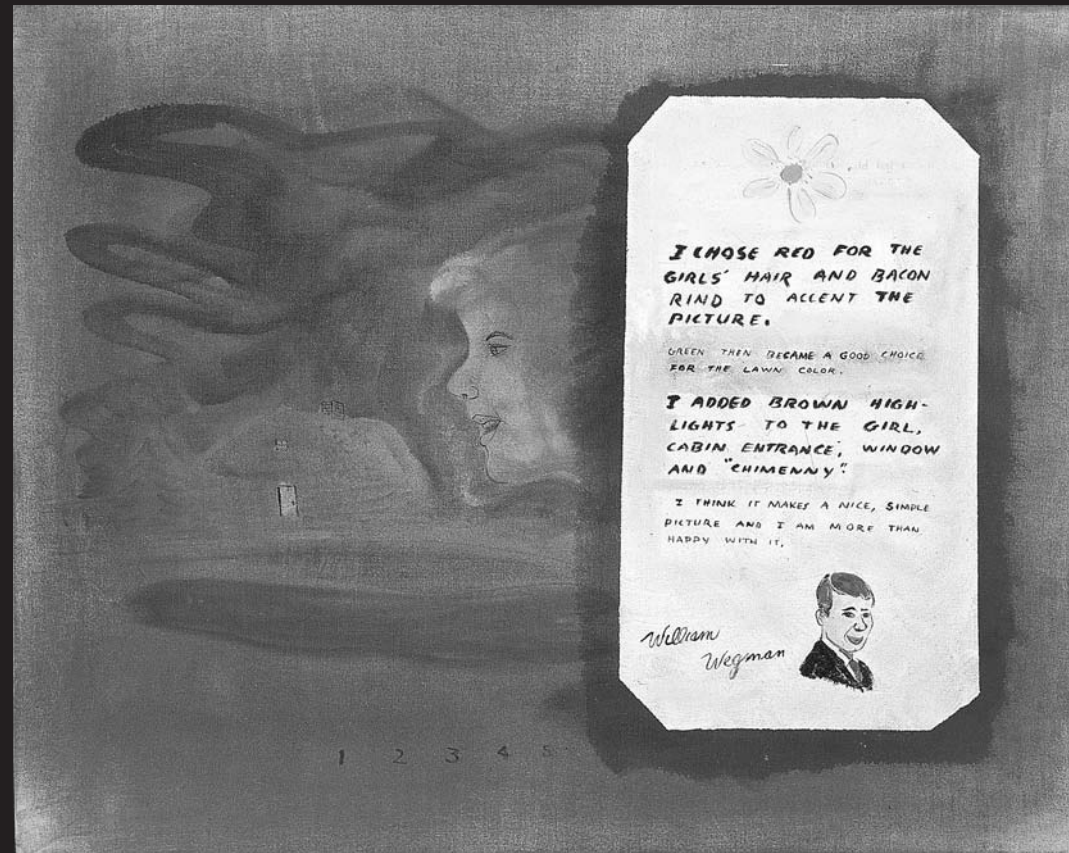 I CHOSE RED FOR THE
GIRLS' HAIR AND BACON
RIND TO ACCENT THE
PICTURE.
GREEN THEN BECAME A GOOD CHOICE
FOR THE LAWN COLOR.
I ADDED BROWN HIGH-
LIGHTS TO THE GIRL,
CABIN ENTRANCE, WINDOW
AND "CHIMENNY".
I THINK IT MAKES A NICE, SIMPLE
PICTURE AND I AM MORE THAN
HAPPY WITH IT.
William
Wegman
1 2 3 4 5